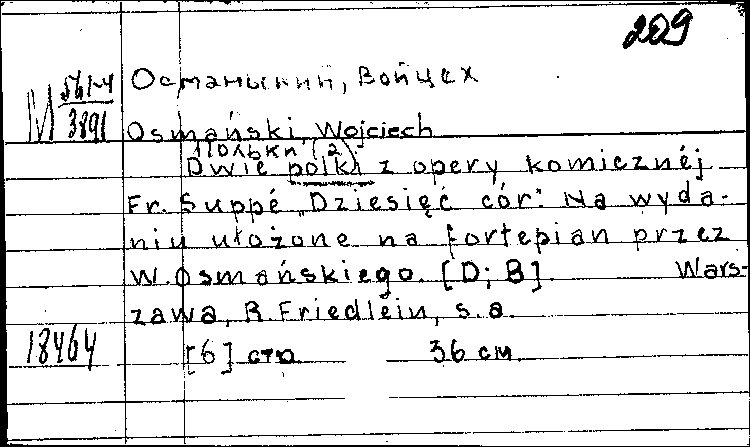 209
М 561-4
3891
Османьский, Войцех
Osmański, Wojciech
Польки (2)
Dwie polki z opery komicznéj
Fr. Suppé „Dziesięć cór". Na wyda-
niu ułożone na fortepian przez
W. Osmańskiego. [D; B]. Wars-
zawa, R. Friedlein, s.a.
18464
[6] стр. 36 см.